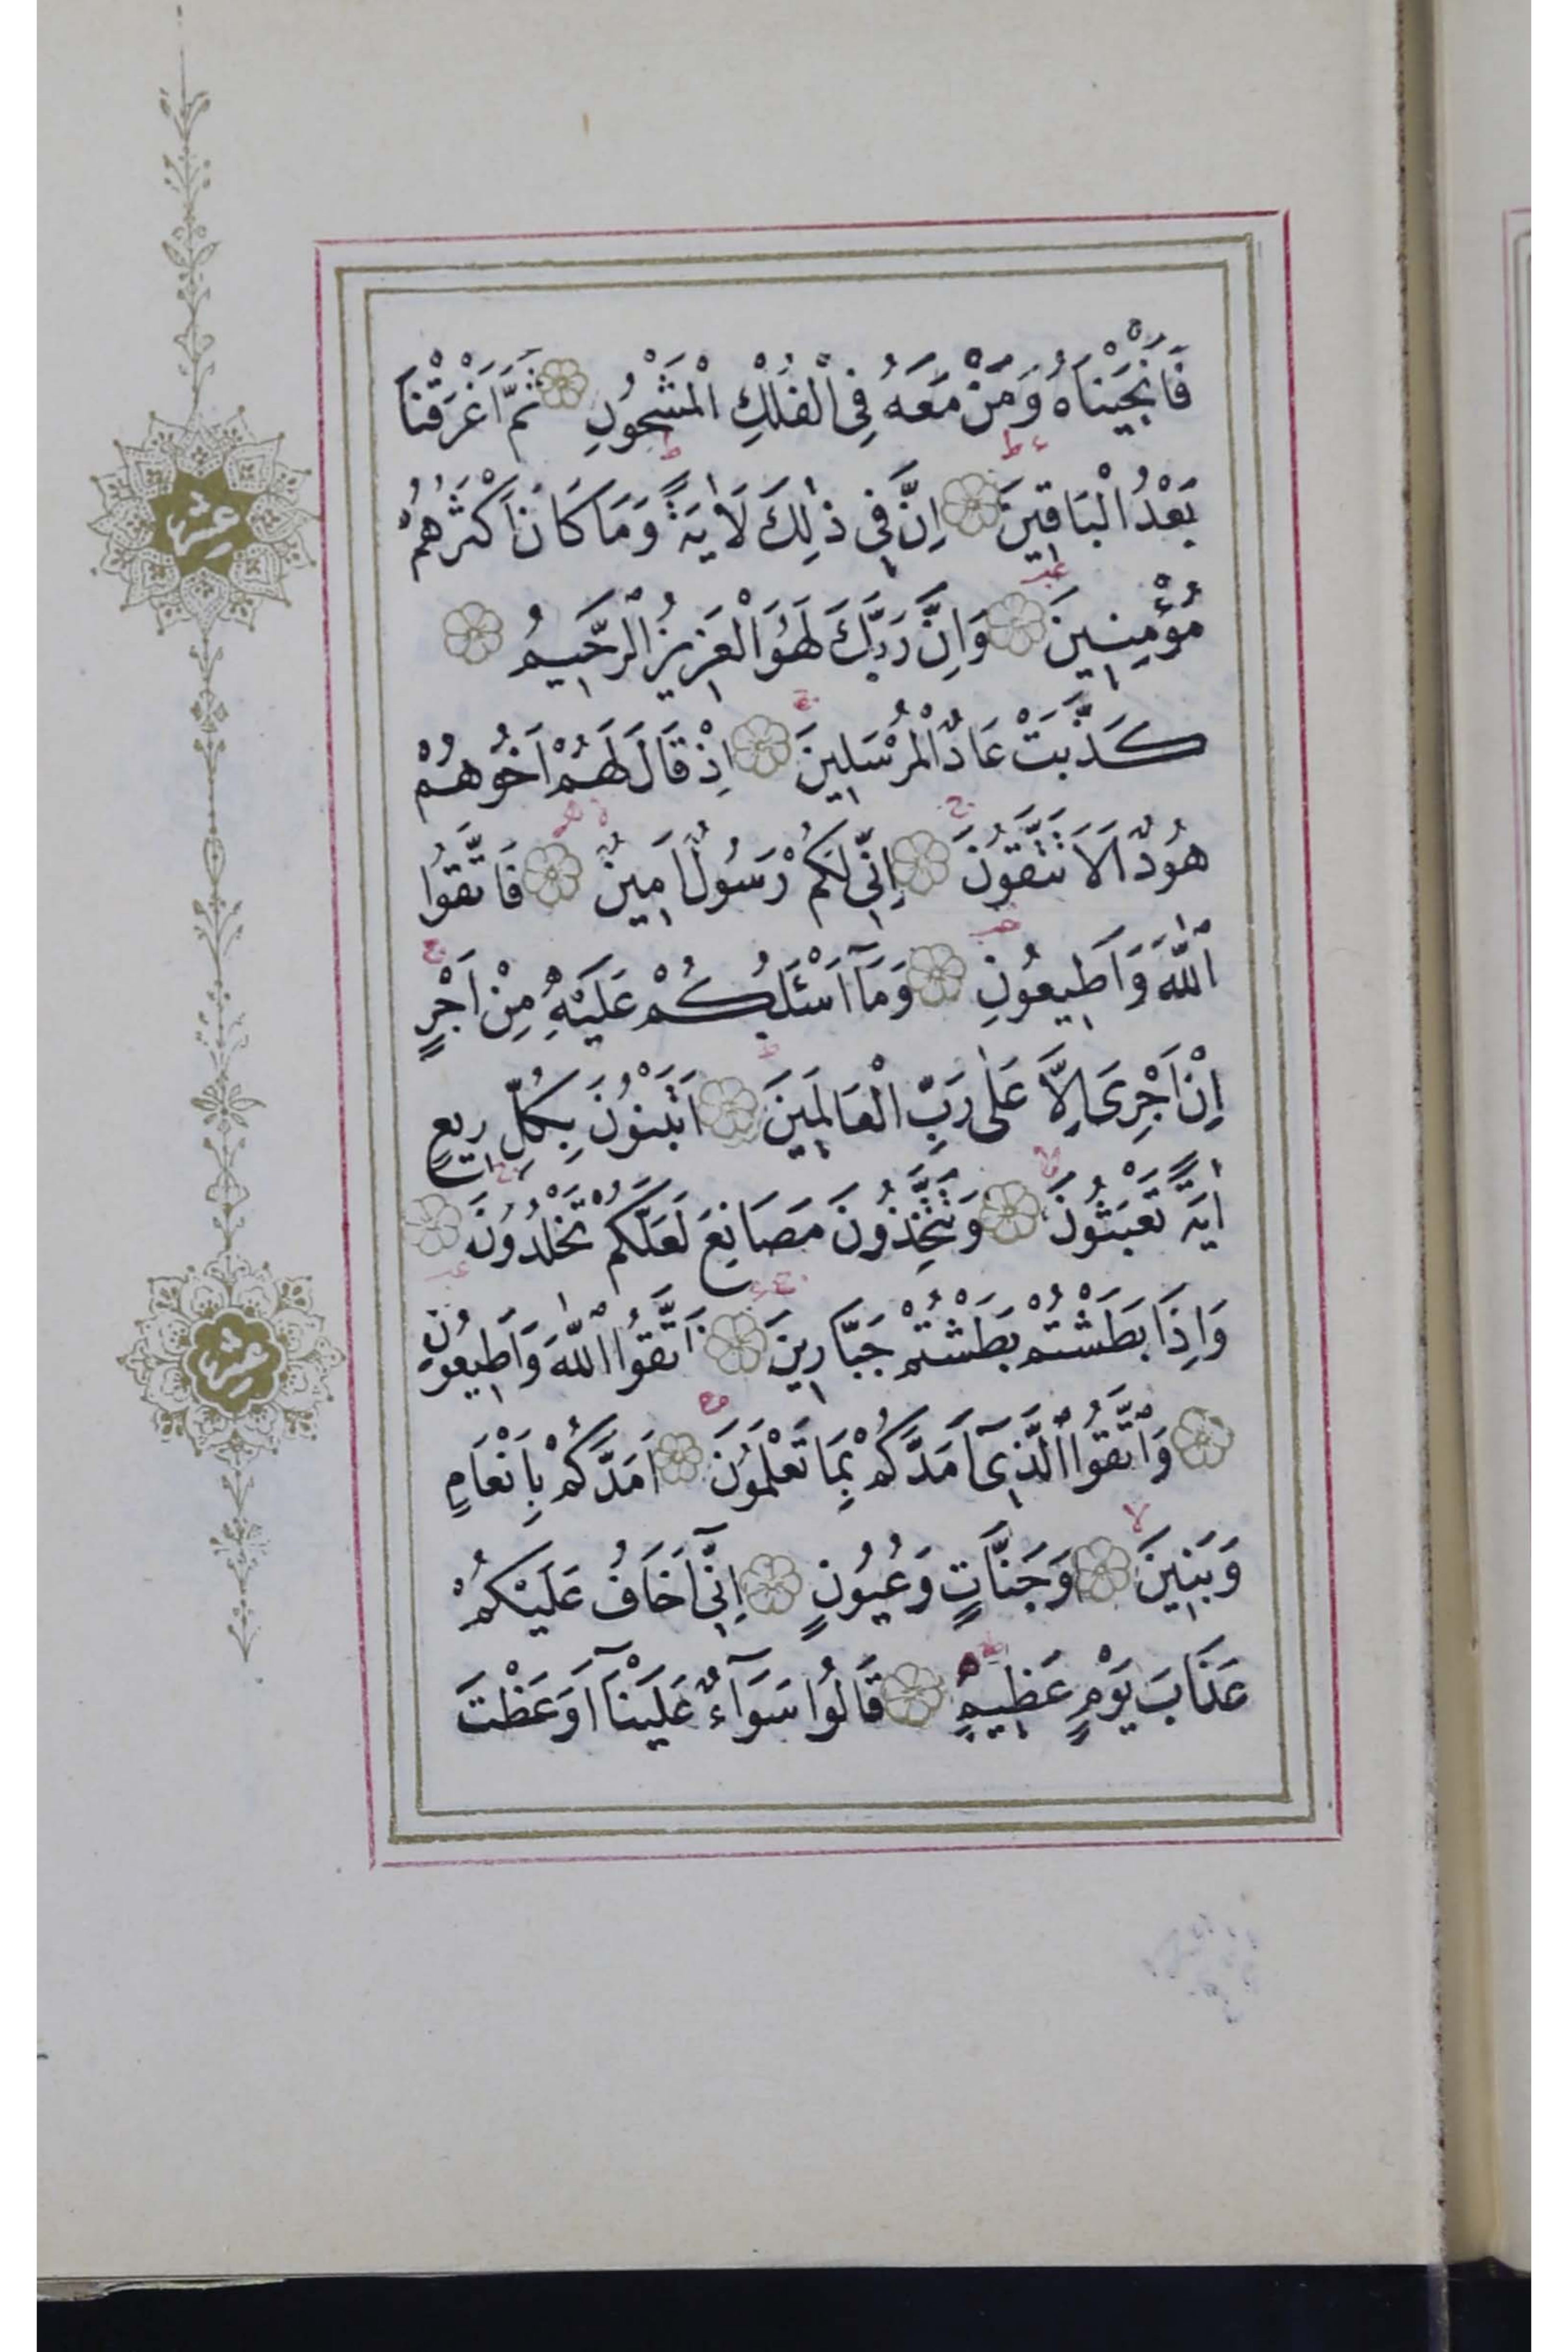 فَاَنْجَيْنَاهُ وَمَنْ مَعَهُ فِى الْفُلْكِ الْمَشْحُونِ ثُمَّ اَغْرَقْنَا
بَعْدُ الْبَاقِينَ اِنَّ فِى ذٰلِكَ لَاٰيَةً وَمَا كَانَ اَكْثَرُهُمْ
مُؤْمِنِينَ وَاِنَّ رَبَّكَ لَهُوَ الْعَزِيزُ الرَّحِيمُ
كَذَّبَتْ عَادٌ الْمُرْسَلِينَ اِذْ قَالَ لَهُمْ اَخُوهُمْ
هُودٌ اَلَا تَتَّقُونَ اِنِّى لَكُمْ رَسُولٌ اَمِينٌ فَاتَّقُوا
اللّٰهَ وَاَطِيعُونِ وَمَٓا اَسْـَٔلُكُمْ عَلَيْهِ مِنْ اَجْرٍ
اِنْ اَجْرِىَ اِلَّا عَلٰى رَبِّ الْعَالَمِينَ اَتَبْنُونَ بِكُلِّ رِيعٍ
اٰيَةً تَعْبَثُونَ وَتَتَّخِذُونَ مَصَانِعَ لَعَلَّكُمْ تَخْلُدُونَ
وَاِذَا بَطَشْتُمْ بَطَشْتُمْ جَبَّارِينَ فَاتَّقُوا اللّٰهَ وَاَطِيعُونِ
وَاتَّقُوا الَّذِىٓ اَمَدَّكُمْ بِمَا تَعْلَمُونَ اَمَدَّكُمْ بِاَنْعَامٍ
وَبَنِينَ وَجَنَّاتٍ وَعُيُونٍ اِنِّىٓ اَخَافُ عَلَيْكُمْ
عَذَابَ يَوْمٍ عَظِيمٍ قَالُوا سَوَٓاءٌ عَلَيْنَٓا اَوَعَظْتَ
عشر
عشر